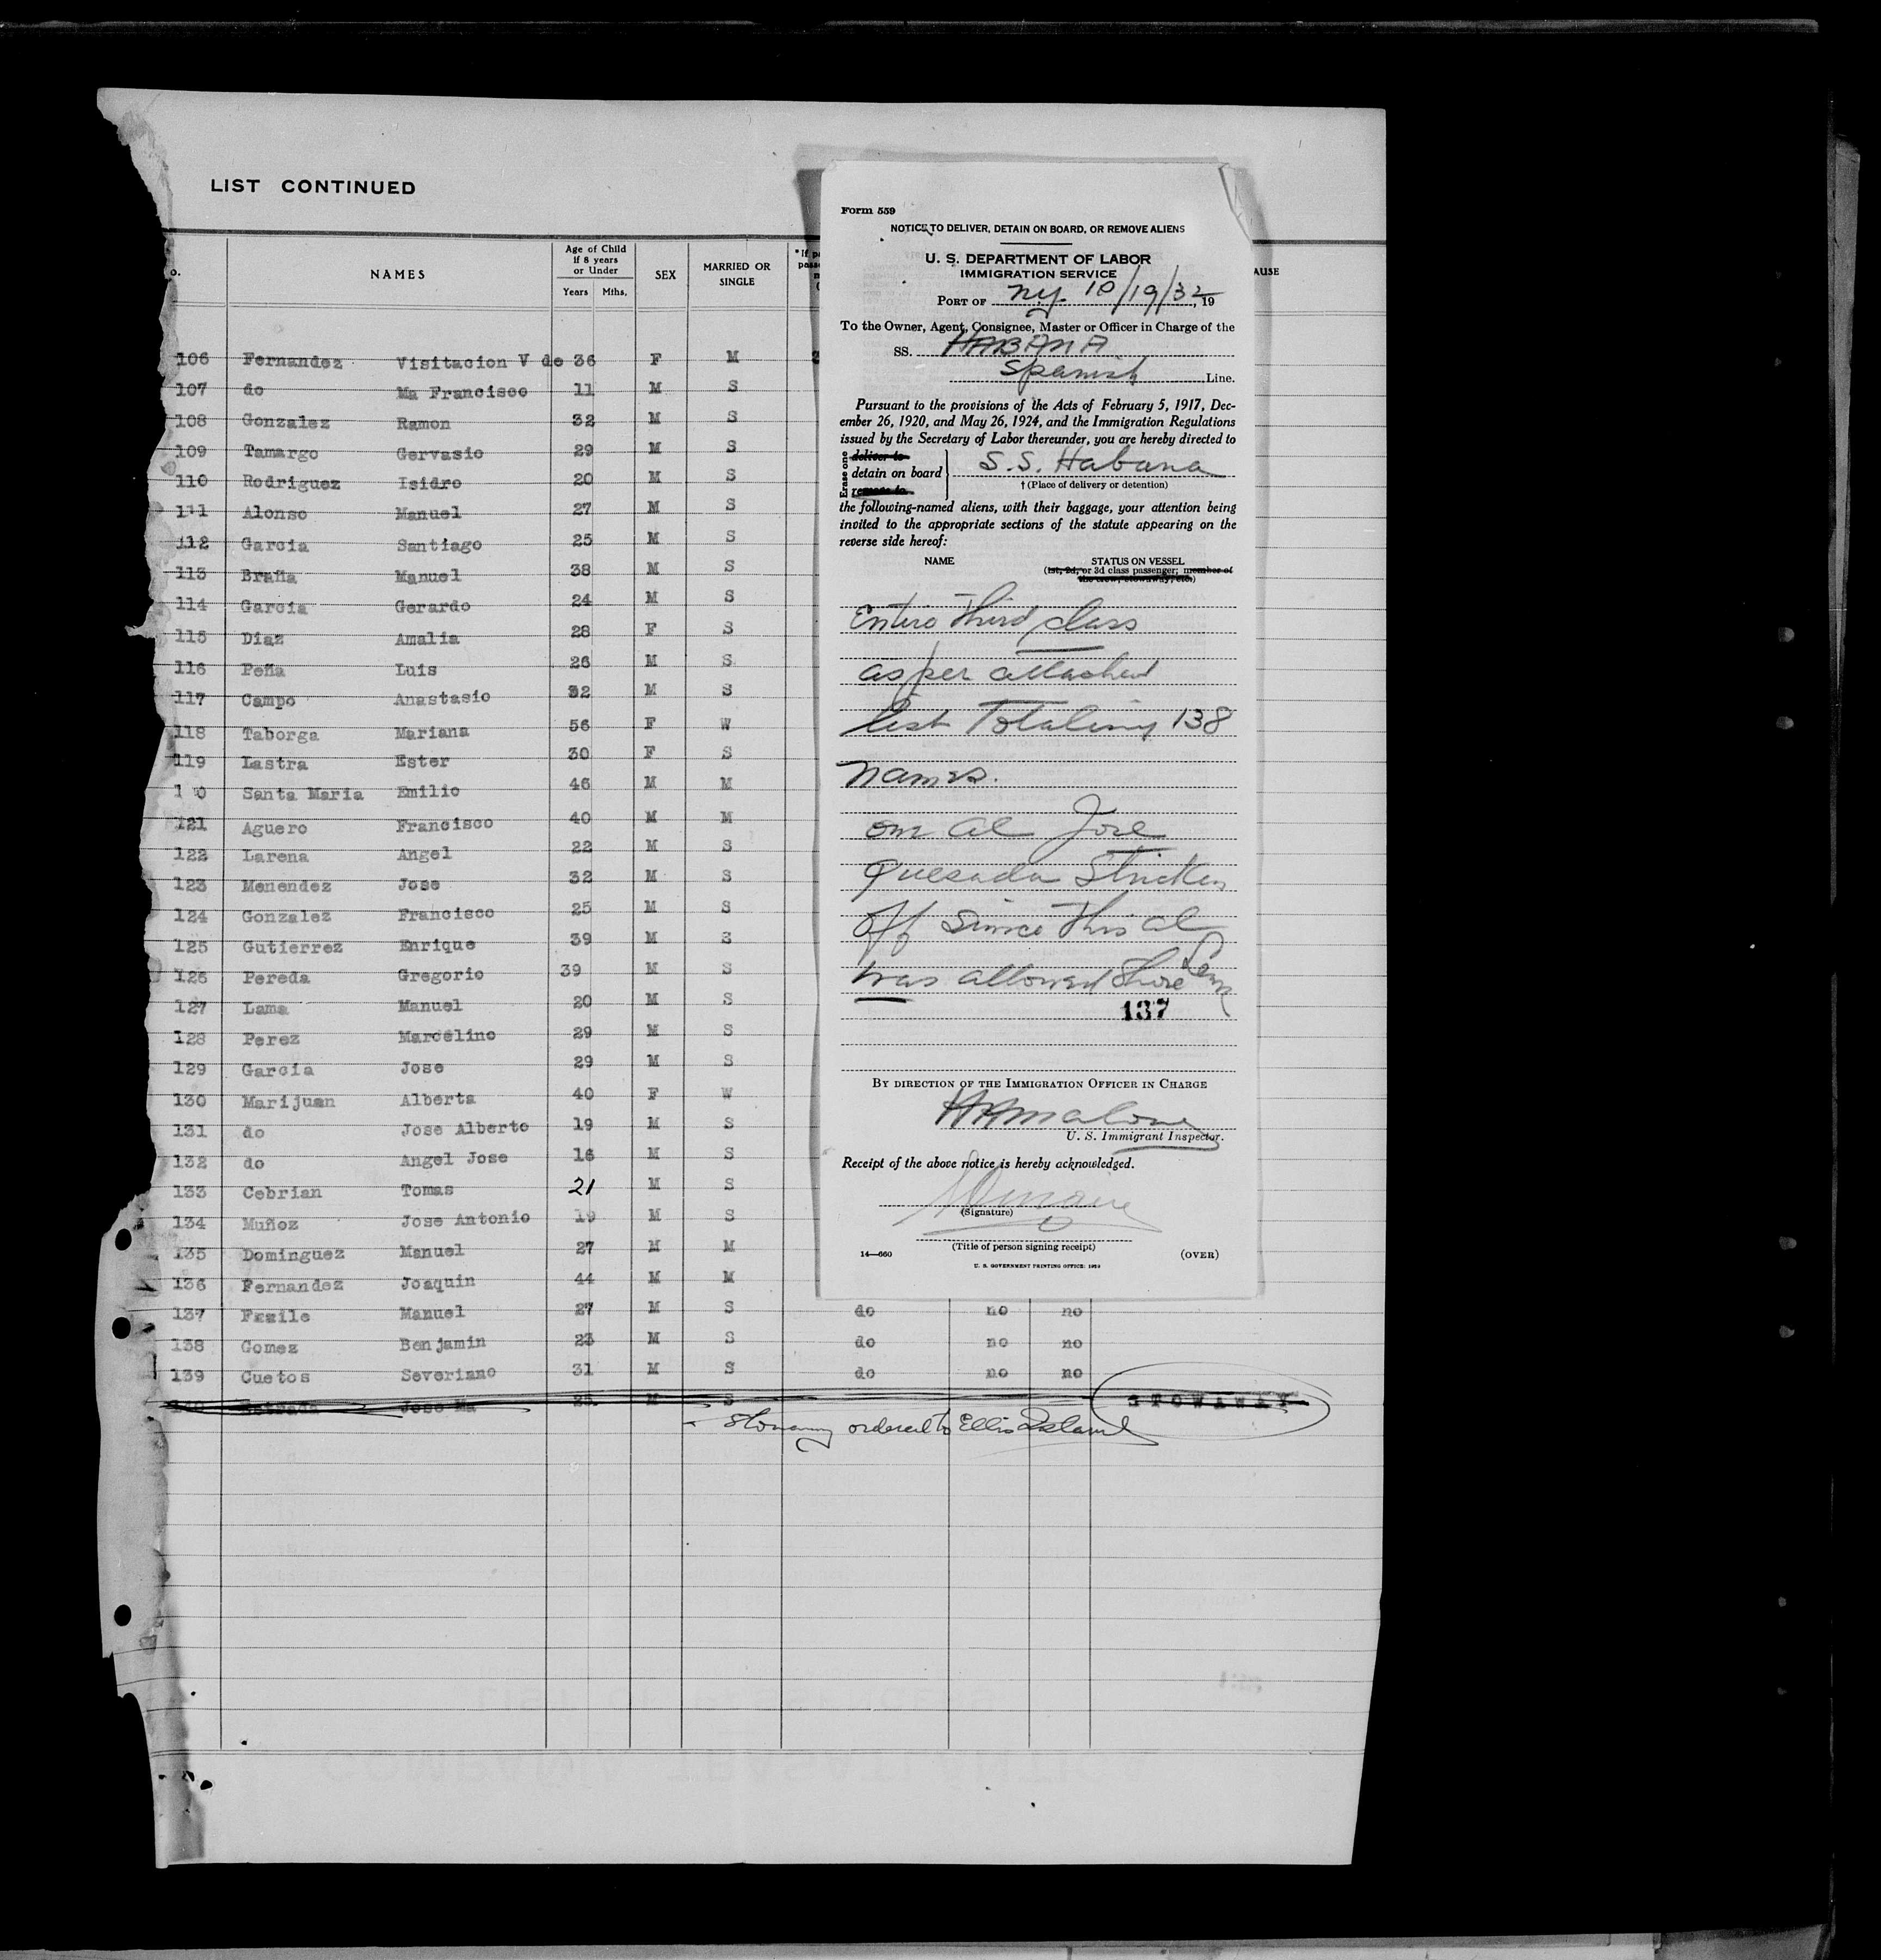 LIST CONTINUED
o. NAMES Age of Child if 8 years or Under Years Mths. SEX MARRIED OR SINGLE
106 Fernandez Visitacion V de 36 F M
107 do Ma Francisco 11 M S
108 Gonzalez Ramon 32 M S
109 Tamargo Gervasio 29 M S
110 Rodriguez Isidro 20 M S
111 Alonso Manuel 27 M S
112 Garcia Santiago 25 M S
113 Braña Manuel 38 M S
114 Garcia Gerardo 24 M S
115 Diaz Amalia 28 F S
116 Peña Luis 26 M S
117 Campo Anastasio 32 M S
118 Taborga Mariana 56 F W
119 Lastra Ester 30 F S
1 0 Santa Maria Emilio 46 M M
121 Aguero Francisco 40 M M
122 Larena Angel 22 M S
123 Menendez Jose 32 M S
124 Gonzalez Francisco 25 M S
125 Gutierrez Enrique 39 M S
126 Pereda Gregorio 39 M S
127 Lama Manuel 20 M S
128 Perez Marcelino 29 M S
129 Garcia Jose 29 M S
130 Marijuan Alberta 40 F W
131 do Jose Alberto 19 M S
132 do Angel Jose 16 M S
133 Cebrian Tomas 21 M S
134 Muñoz Jose Antonio 19 M S
135 Dominguez Manuel 27 M M
136 Fernandez Joaquin 44 M M
137 Manuel 27 M S do no no
138 Gomez Benjamin 23 M S do no no
139 Cuetos Severiano 31 M S do no no
140 Estrada Jose Ma 25 M S STOWAWAY
Stowaway ordered to Ellis Island
AUSE
Form 559
NOTICE TO DELIVER, DETAIN ON BOARD, OR REMOVE ALIENS
U. S. DEPARTMENT OF LABOR
IMMIGRATION SERVICE
PORT OF N.Y. 10/19/32, 19
To the Owner, Agent, Consignee, Master or Officer in Charge of the
SS. HABANA
Spanish Line.
Pursuant to the provisions of the Acts of February 5, 1917, Dec-
ember 26, 1920, and May 26, 1924, and the Immigration Regulations
issued by the Secretary of Labor thereunder, you are hereby directed to
Erase one
deliver to
detain on board S.S. Habana
remove to
† (Place of delivery or detention)
the following-named aliens, with their baggage, your attention being
invited to the appropriate sections of the statute appearing on the
reverse side hereof:
NAME STATUS ON VESSEL
(1st, 2d, or 3d class passenger; member of
the crew, stowaway, etc.)
Entire Third class
as per attached
list Totaling 138
names.
one al Jose
Quesada Stricken
off since this al
was allowed Shore Leave
137
BY DIRECTION OF THE IMMIGRATION OFFICER IN CHARGE
Malone
U. S. Immigrant Inspector.
Receipt of the above notice is hereby acknowledged.
(Signature)
(Title of person signing receipt)
14—660 (OVER)
U. S. GOVERNMENT PRINTING OFFICE: